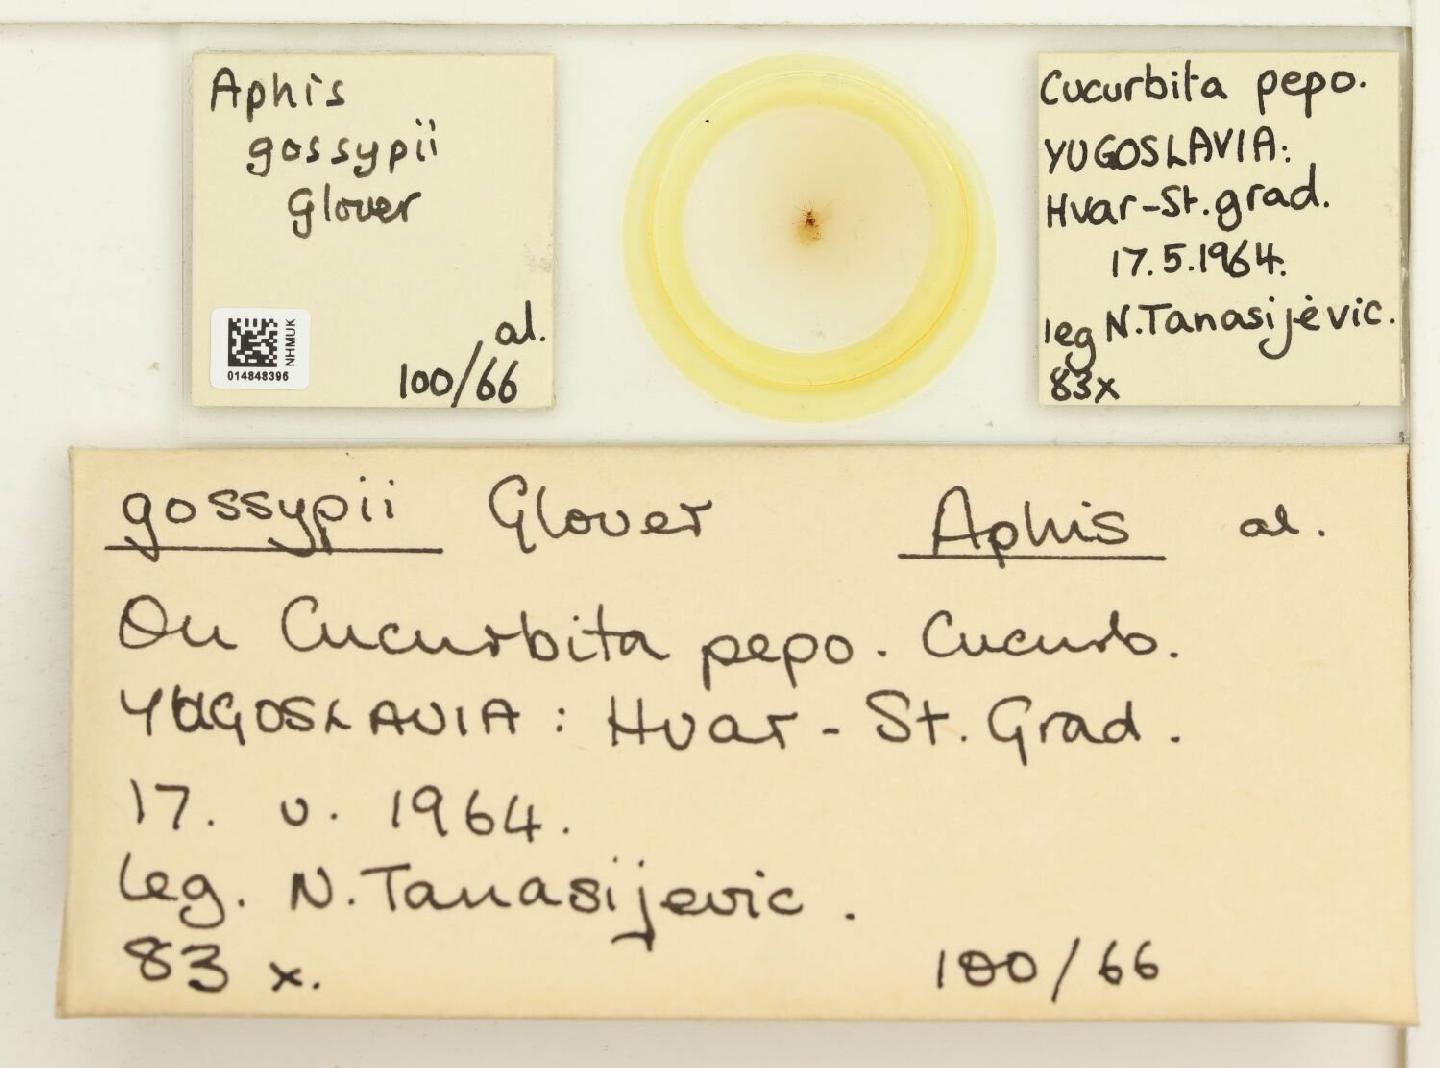 Aphis
gossypii
Glover
al.
100/66
NHMUK
014848396
Cucurbita pepo.
YUGOSLAVIA:
Hvar-St.grad.
17.5.1964.
leg N.Tanasijevic.
83x
gossypii Glover Aphis al.
On Cucurbita pepo. Cucurb.
YUGOSLAVIA: Hvar-St. Grad.
17. v. 1964.
leg. N. Tanasijevic.
83 x. 100/66